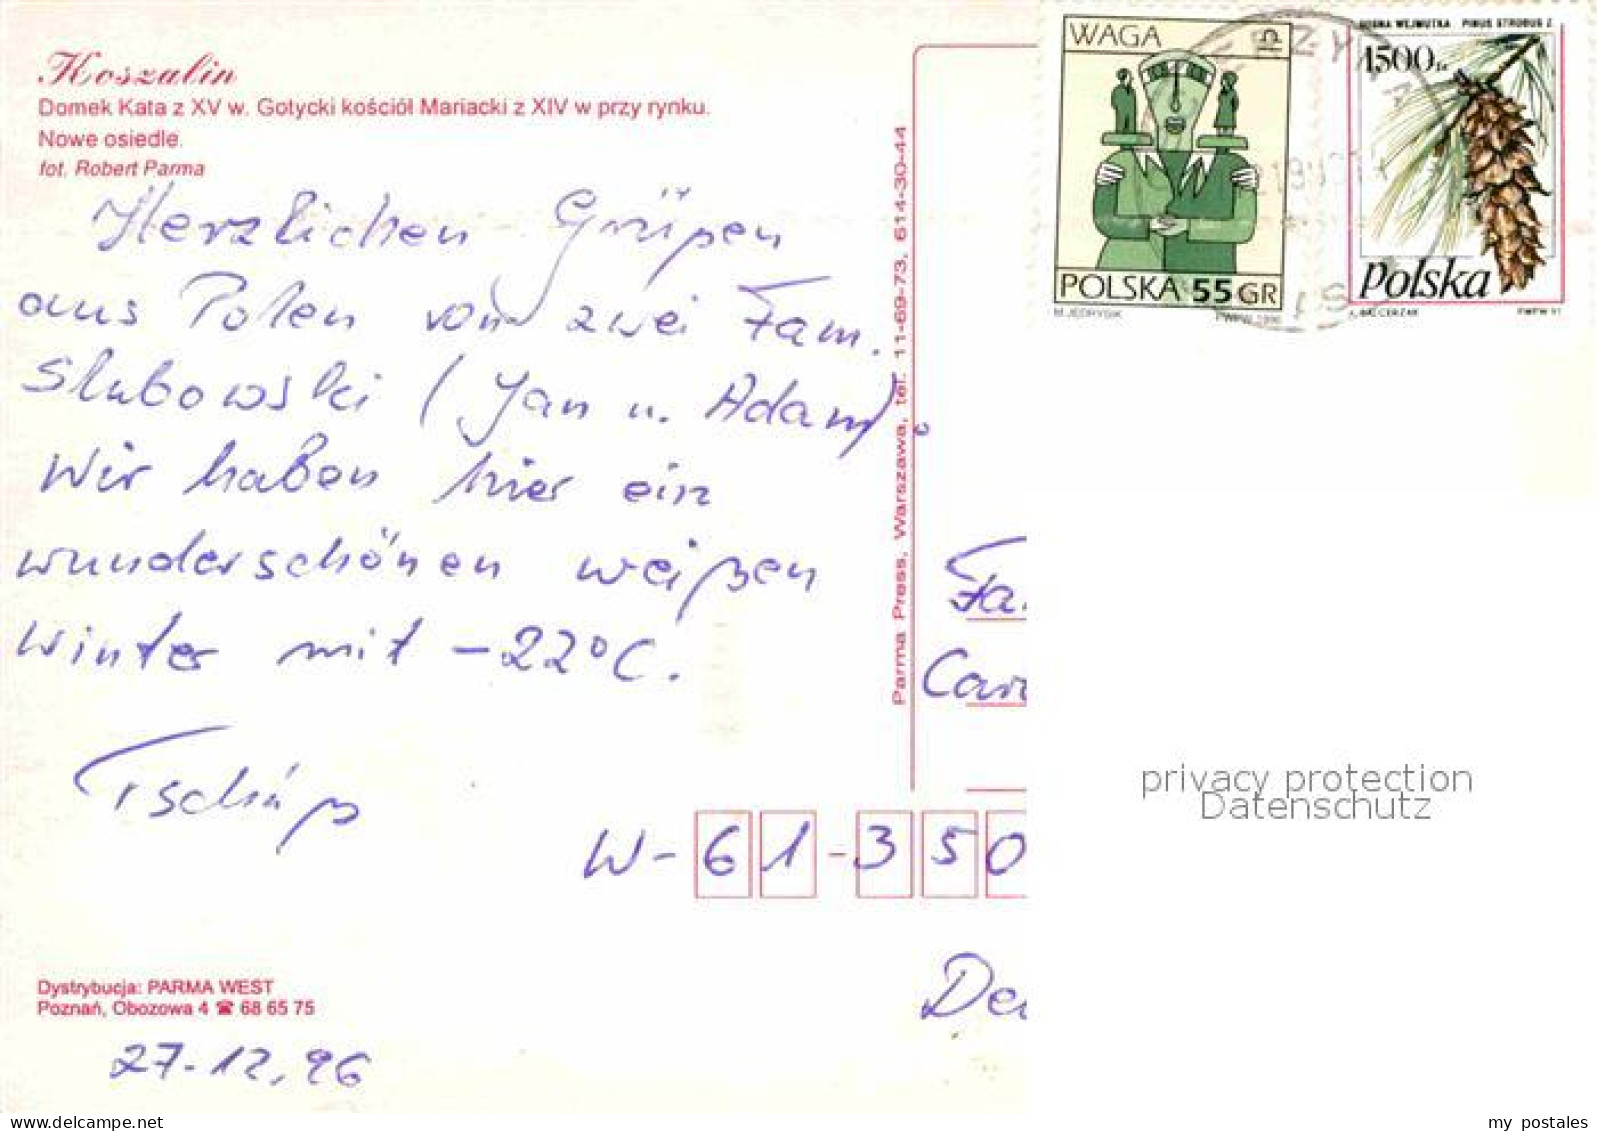 Koszalin
Domek Kata z XV w. Gotycki kościół Mariacki z XIV w przy rynku.
Nowe osiedle.
fot. Robert Parma
Herzlichen Grüßen
aus Polen von zwei Fam.
Slubowski (Jan u. Adam).
Wir haben hier ein
wunderschönen weißen
Winter mit -22°C.
Tschüß
W-61-350
Dystrybucja: PARMA WEST
Poznań, Obozowa 4 ☎ 68 65 75
27.12.96
Parma Press, Warszawa, tel. 11-69-73, 614-30-44
WAGA
POLSKA 55 GR
M.JEDRYSIK PWPW 1996
SOSNA WEJMUTKA PINUS STROBUS L.
1500 zł
Polska
PWPW 91
Fa
Car
De
privacy protection
Datenschutz
my postales